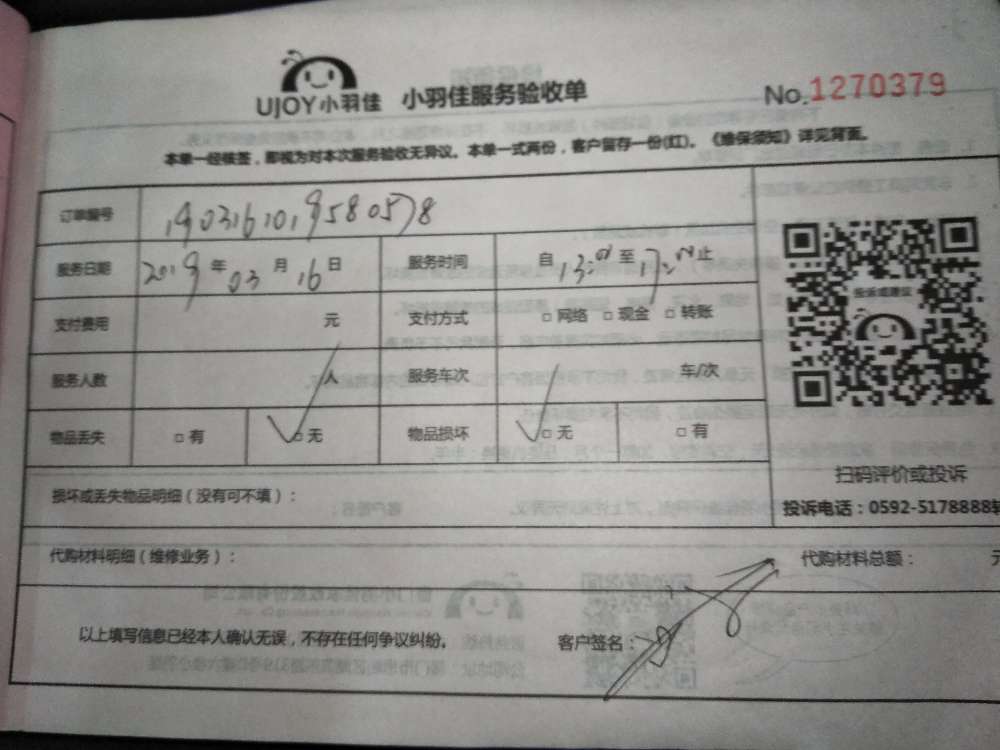 UJOY小羽佳 小羽佳服务验收单 No.1270379
本单一经核签，即视为对本次服务验收无异议。本单一式两份，客户留存一份(红)。《维保须知》详见背面。
订单编号 1903161019580578
服务日期 2019年03月16日 服务时间 自13:00至17:00止
支付费用 元 支付方式 □网络 □现金 □转账
服务人数 人 服务车次 车/次
物品丢失 □有 ✓□无 物品损坏 ✓□无 □有
投诉或建议
扫码评价或投诉
投诉电话：0592-5178888转
损坏或丢失物品明细（没有可不填）：
代购材料明细（维修业务）： 代购材料总额： 元
以上填写信息已经本人确认无误，不存在任何争议纠纷。 客户签名：